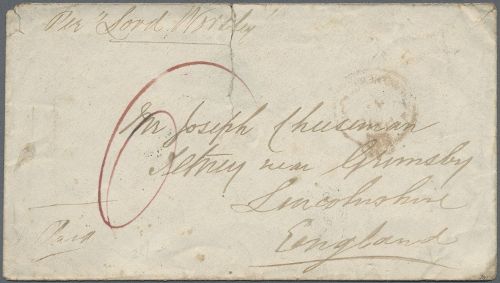 Per "Lord Worsley"
6
Mr Joseph Cheeseman
Tetney near Grimsby
Lincolnshire
Paid
England